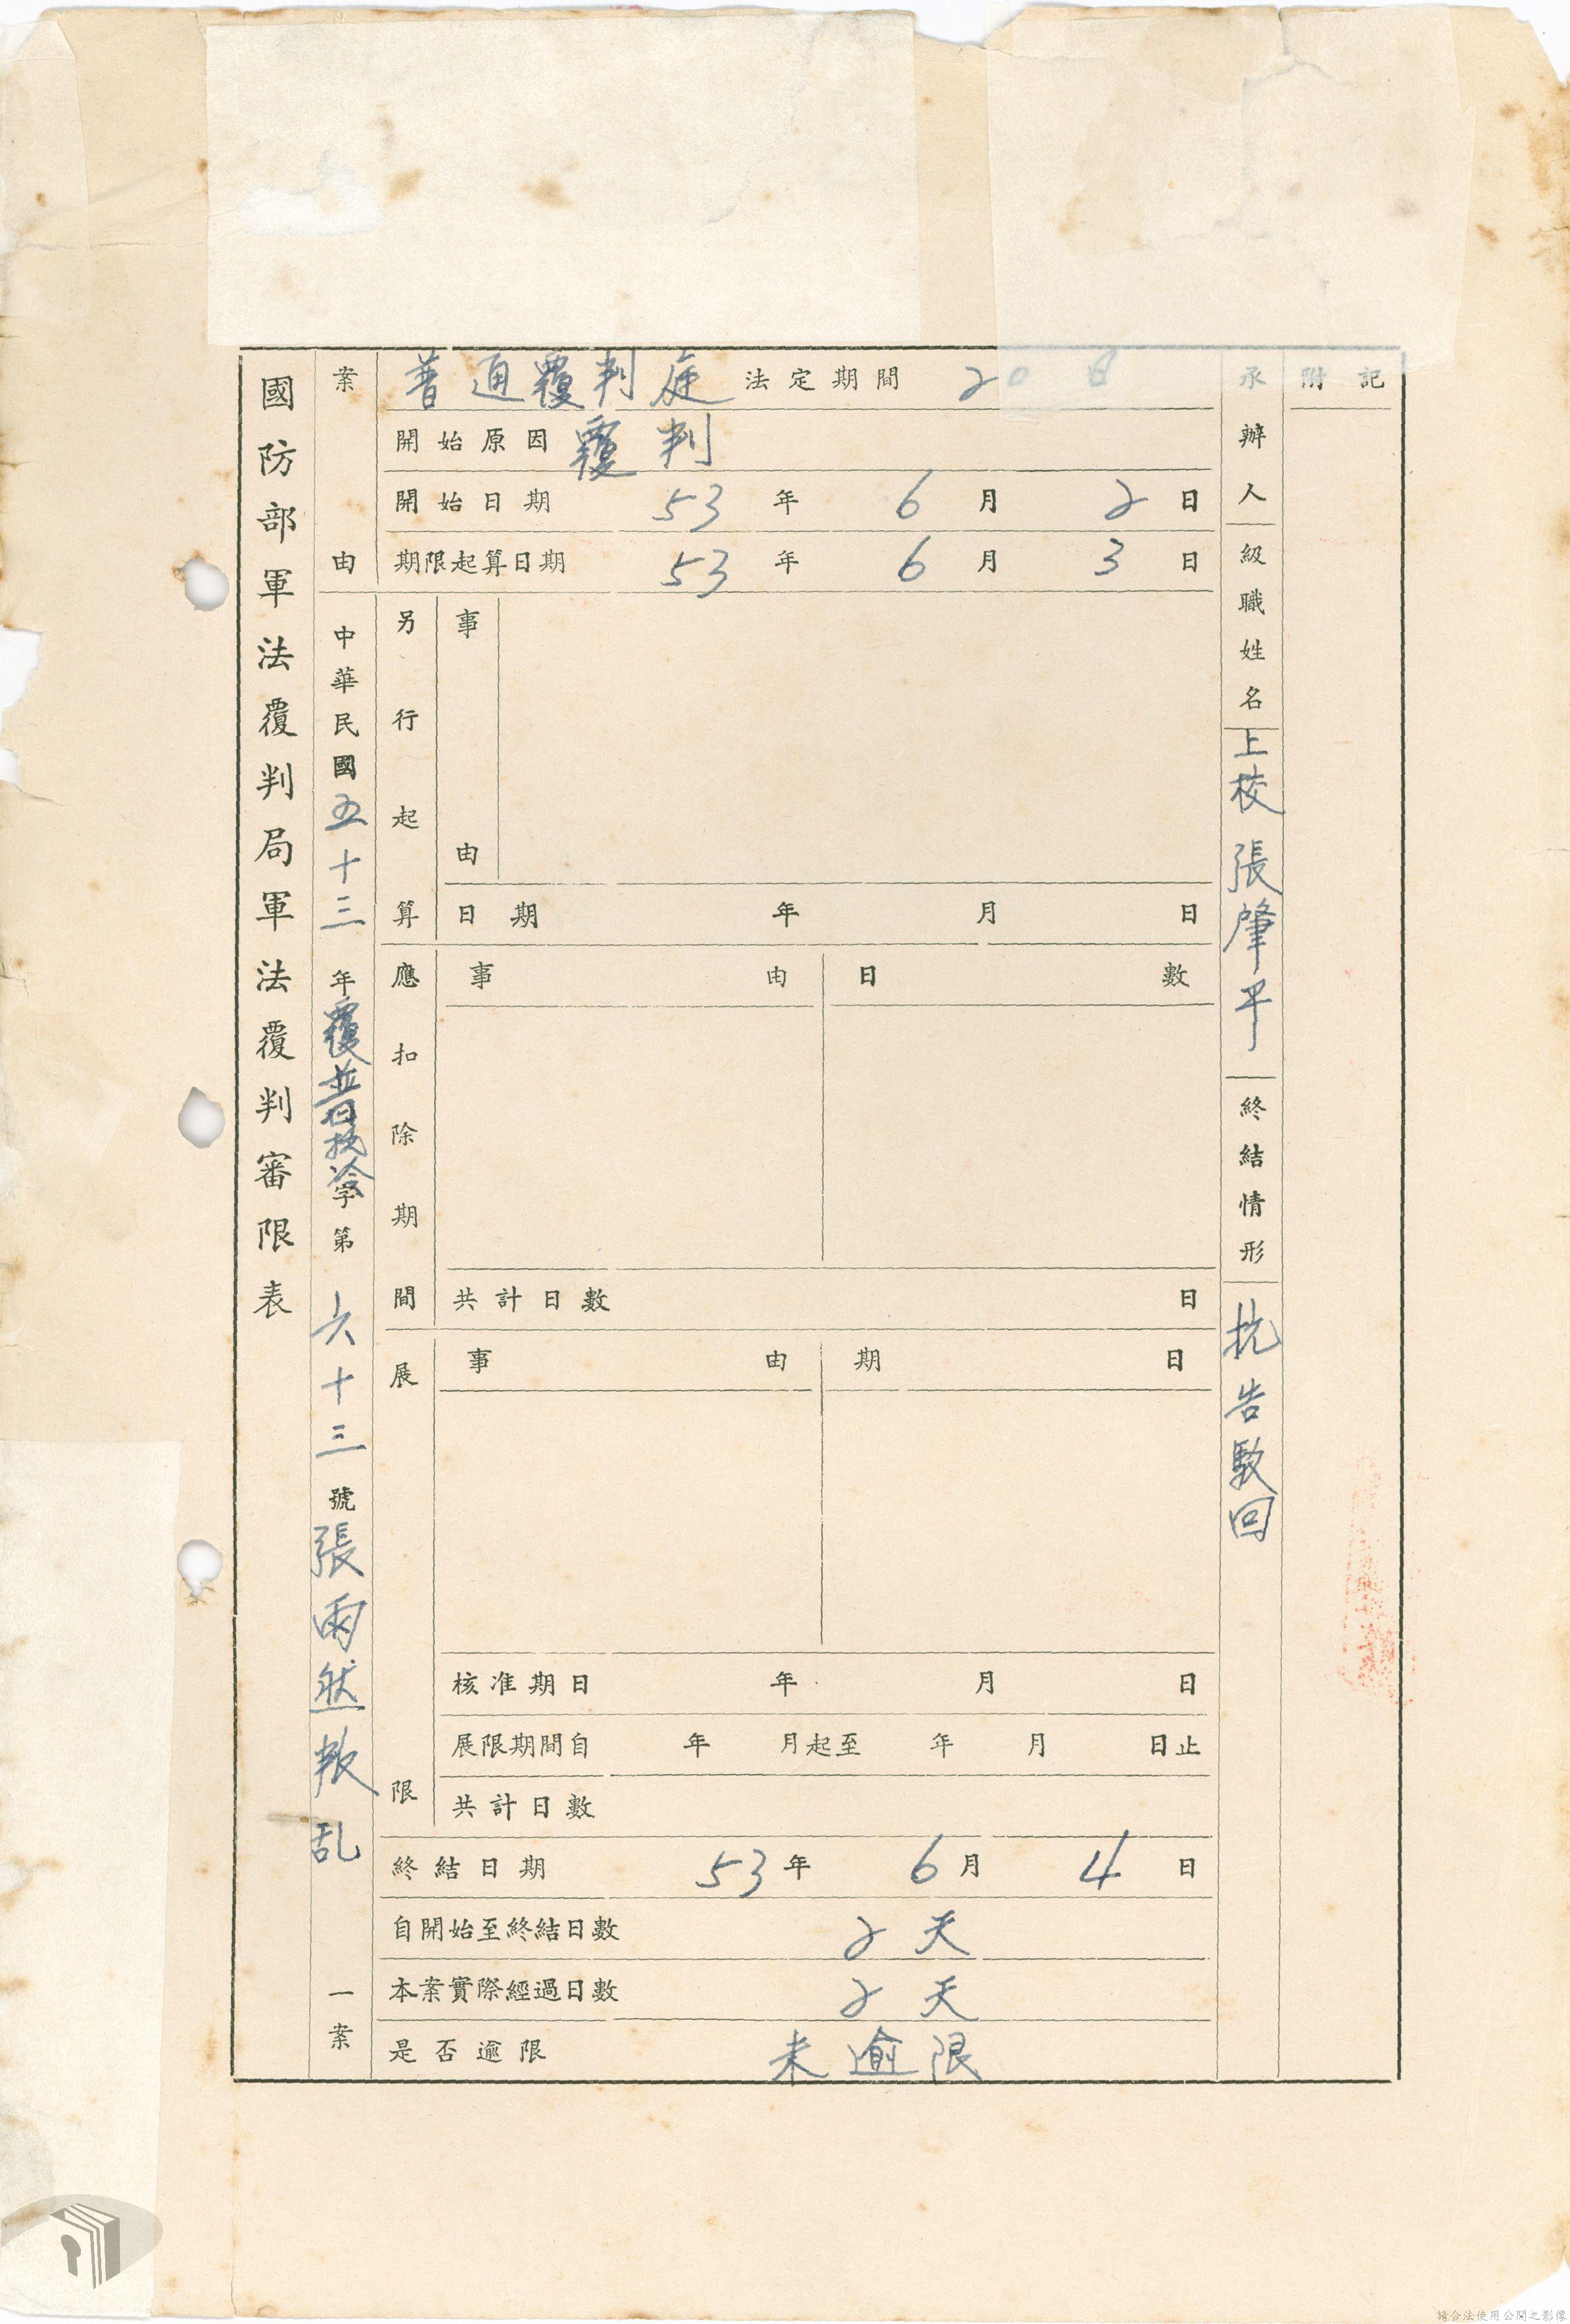 國防部軍法覆判局軍法覆判審限表
案由
中華民國五十三年覆普抗洽字第六十三號張雨然叛乱一案
普通覆判庭 法定期間 20 日
開始原因 覆判
開始日期 53年6月2日
期限起算日期 53年6月3日
另行起算
事由
日期 年 月 日
應扣除期間
事由 日數
共計日數 日
展限
事由 期日
核准期日 年 月 日
展限期間自 年 月起至 年 月 日止
共計日數
終結日期 53年6月4日
自開始至終結日數 2天
本案實際經過日數 2天
是否逾限 未逾限
承辦人級職姓名 上校 張肇平
終結情形 抗告駁回
附記
請合法使用公開之影像